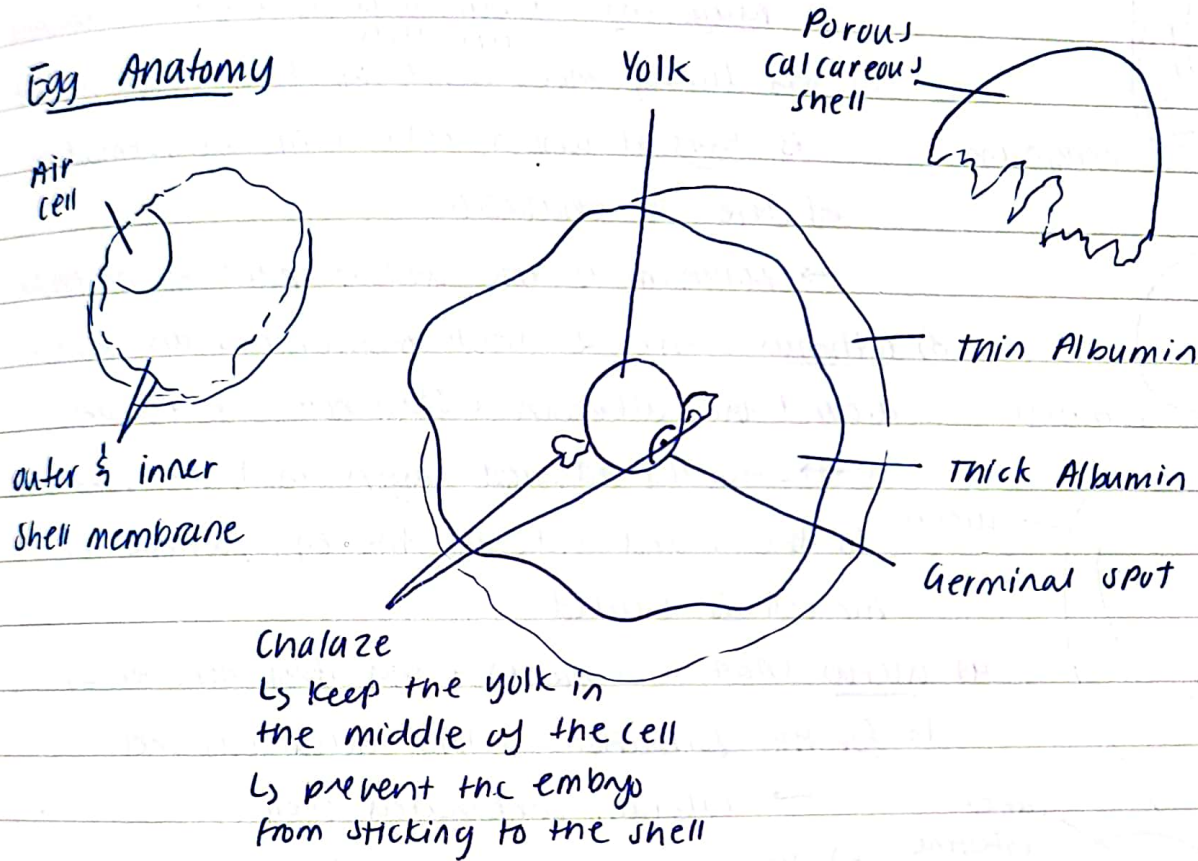 Egg Anatomy
Air
cell
outer & inner
shell membrane
Yolk
Porous
Calcareous
shell
thin Albumin
Thick Albumin
Germinal spot
Chalaze
↳ keep the yolk in
the middle of the cell
↳ prevent the embryo
from sticking to the shell